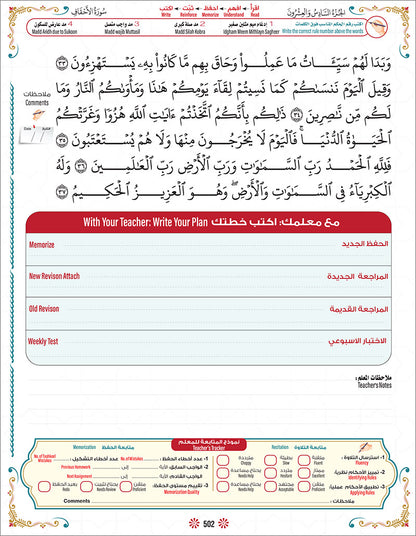 اقرأ • افهم • احفظ • ثبّت • اكتب
Write Reinforce Memorize Understand Read
سُورَةُ الأَحْقَافِ
الجُزْءُ السَّادِسُ وَالعِشْرُونَ
4 مد عارض للسكون
Madd Aridh due to Sukoon
3 مد واجب متصل
Madd wajib Muttasil
2 مد صلة كبرى
Madd Silah Kobra
1 إدغام ميم مثلين صغير
Idgham Meem Mithlayn Sagheer
اكتب رقم الحكم المناسب فوق الكلمات
Write the correct rule number above the words
ملاحظات
Comments
وَبَدَا لَهُمْ سَيِّئَاتُ مَا عَمِلُوا۟ وَحَاقَ بِهِم مَّا كَانُوا۟ بِهِۦ يَسْتَهْزِءُونَ ٣٣
وَقِيلَ ٱلْيَوْمَ نَنسَىٰكُمْ كَمَا نَسِيتُمْ لِقَآءَ يَوْمِكُمْ هَٰذَا وَمَأْوَىٰكُمُ ٱلنَّارُ وَمَا
لَكُم مِّن نَّٰصِرِينَ ٣٤ ذَٰلِكُم بِأَنَّكُمُ ٱتَّخَذْتُمْ ءَايَٰتِ ٱللَّهِ هُزُوًا وَغَرَّتْكُمُ
ٱلْحَيَوٰةُ ٱلدُّنْيَا ۚ فَٱلْيَوْمَ لَا يُخْرَجُونَ مِنْهَا وَلَا هُمْ يُسْتَعْتَبُونَ
٣٥ فَلِلَّهِ ٱلْحَمْدُ رَبِّ ٱلسَّمَٰوَٰتِ وَرَبِّ ٱلْأَرْضِ رَبِّ ٱلْعَٰلَمِينَ ٣٦ وَلَهُ
ٱلْكِبْرِيَآءُ فِى ٱلسَّمَٰوَٰتِ وَٱلْأَرْضِ ۖ وَهُوَ ٱلْعَزِيزُ ٱلْحَكِيمُ ٣٧
With Your Teacher: Write Your Plan مع معلمك: اكتب خطتك
Memorize الحفظ الجديد
New Revison Attach المراجعة الجديدة
Old Revison المراجعة القديمة
Weekly Test الاختبار الاسبوعي
ملاحظات المعلم:
Teacher's Notes
نموذج المتابعة للمعلم
Teacher's Tracker
Memorization متابعة الحفظ
Recitation متابعة التلاوة
1- استرسال التلاوة:
Fluency
متقنة
Excellent
بطيئة
Slow
مترددة
1- عدد أخطاء الحفظ:
No. of Mistakes
عدد أخطاء التشكيل:
No. of Tashkeel Mistakes
2- تمييز الأحكام نظرية:
Identifying Rules
ممتاز
Excellent
يحتاج مساعدة
Needs Help
2- الواجب السابق: الآية
إلى
Previous Homework
الواجب القادم: الآية
إلى
Next Assignment
3- تطبيق الأحكام عملية:
Applying Rules
متقن
Proficient
مقبول
Acceptable
يحتاج مساعدة
Needs Help
3- تقييم مستوى الحفظ:
Memorization Quality
متقن
Proficient
يحتاج تثبيت
Needs Review
يعيد الحفظ
Redo
ملاحظات:
Comments
502